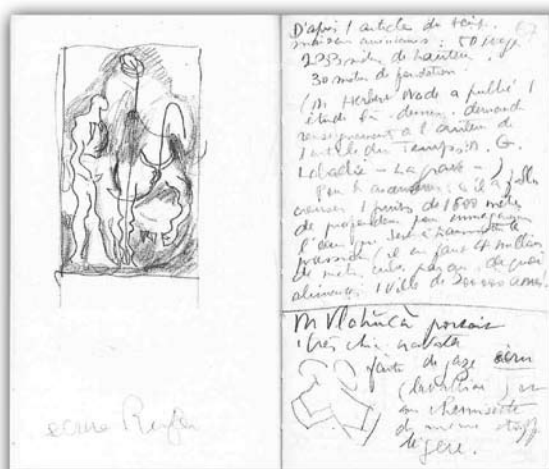 D'après 1 article du temps.
maison américaine : 50
233 mètres de hauteur.
30 mètres de fondation.
(M Herbert Wade a publié 1
étude demand
renseignement à l'auteur de
l'article du Temps : M. G.
Labadie - La grave -)
Pour l' il a fallu
creuser 1 puits de 1600 mètres
de profondeur pour emmagasiner
l'eau qui sert à transmettre la
pression (il en faut 4 millions
de mètres cubes par an de quoi
alimenter 1 ville de 200 000 âmes).
M Vlahuta portait
1 très chic cravate
faite de gaze écru
(lavallière) et
une chemisette
de même étoffe
légère.